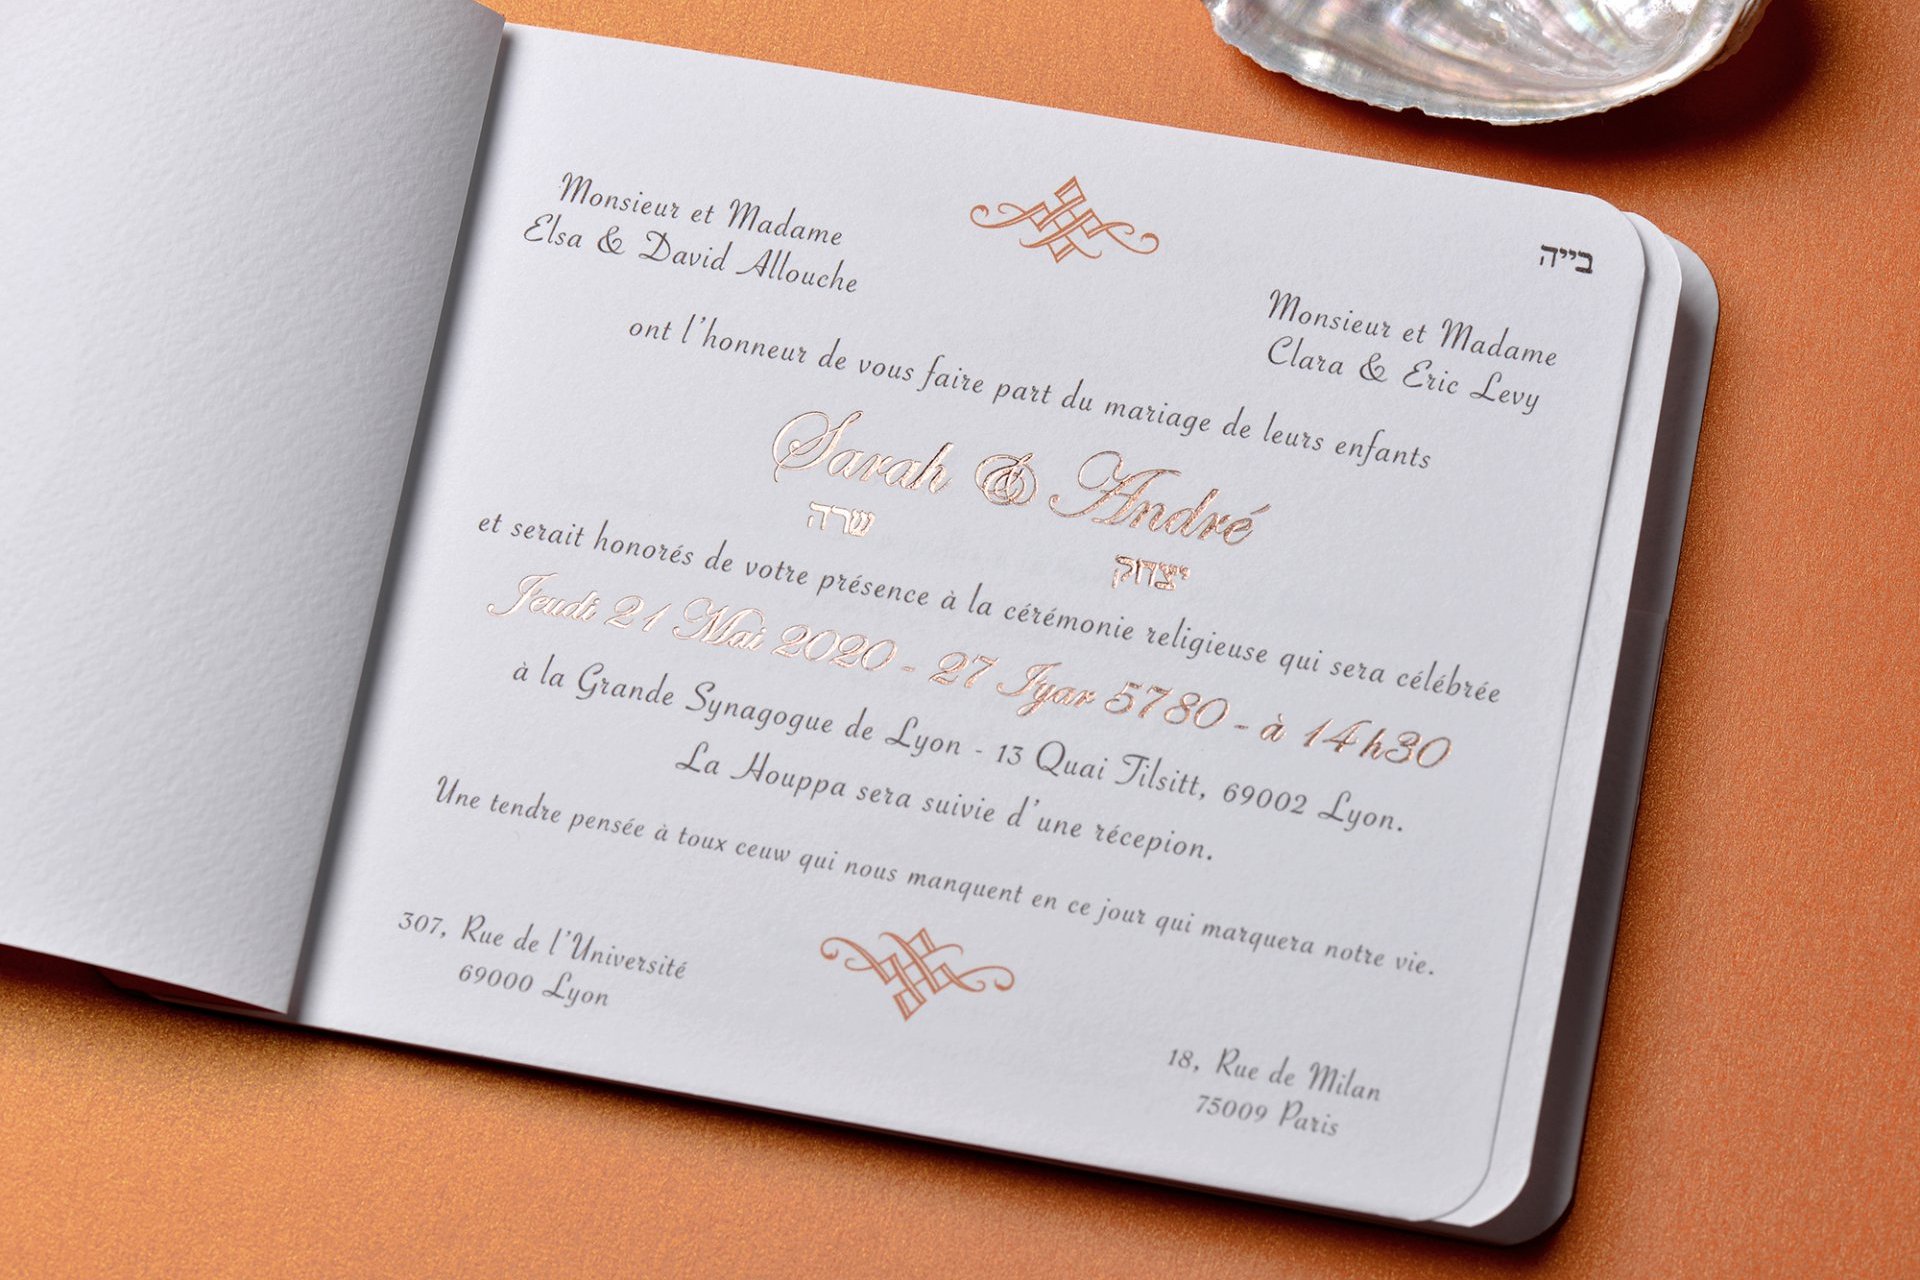 בייה
Monsieur et Madame
Elsa & David Allouche
Monsieur et Madame
Clara & Eric Levy
ont l'honneur de vous faire part du mariage de leurs enfants
Sarah & André
שרה
יצחק
et serait honorés de votre présence à la cérémonie religieuse qui sera célébrée
Jeudi 21 Mai 2020 - 27 Iyar 5780 - à 14h30
à la Grande Synagogue de Lyon - 13 Quai Tilsitt, 69002 Lyon.
La Houppa sera suivie d'une récepion.
Une tendre pensée à toux ceuw qui nous manquent en ce jour qui marquera notre vie.
307, Rue de l'Université
69000 Lyon
18, Rue de Milan
75009 Paris